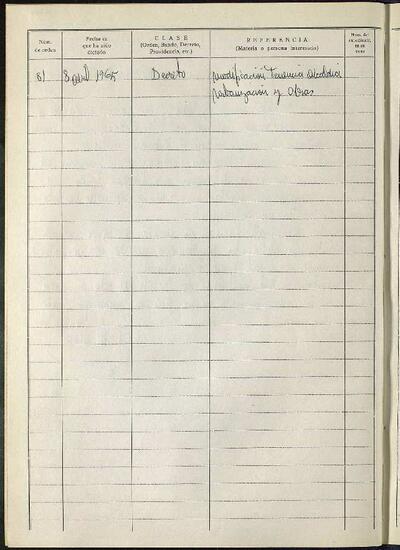 Núm. de orden
Fecha en que ha sido dictado
CLASE
(Orden, Bando, Decreto, Providencia, etc.)
REFERENCIA
(Materia o persona interesada)
Núm. de
81 8 abril 1965 Decreto modificación Tenencia Alcaldía
Urbanización y Obras